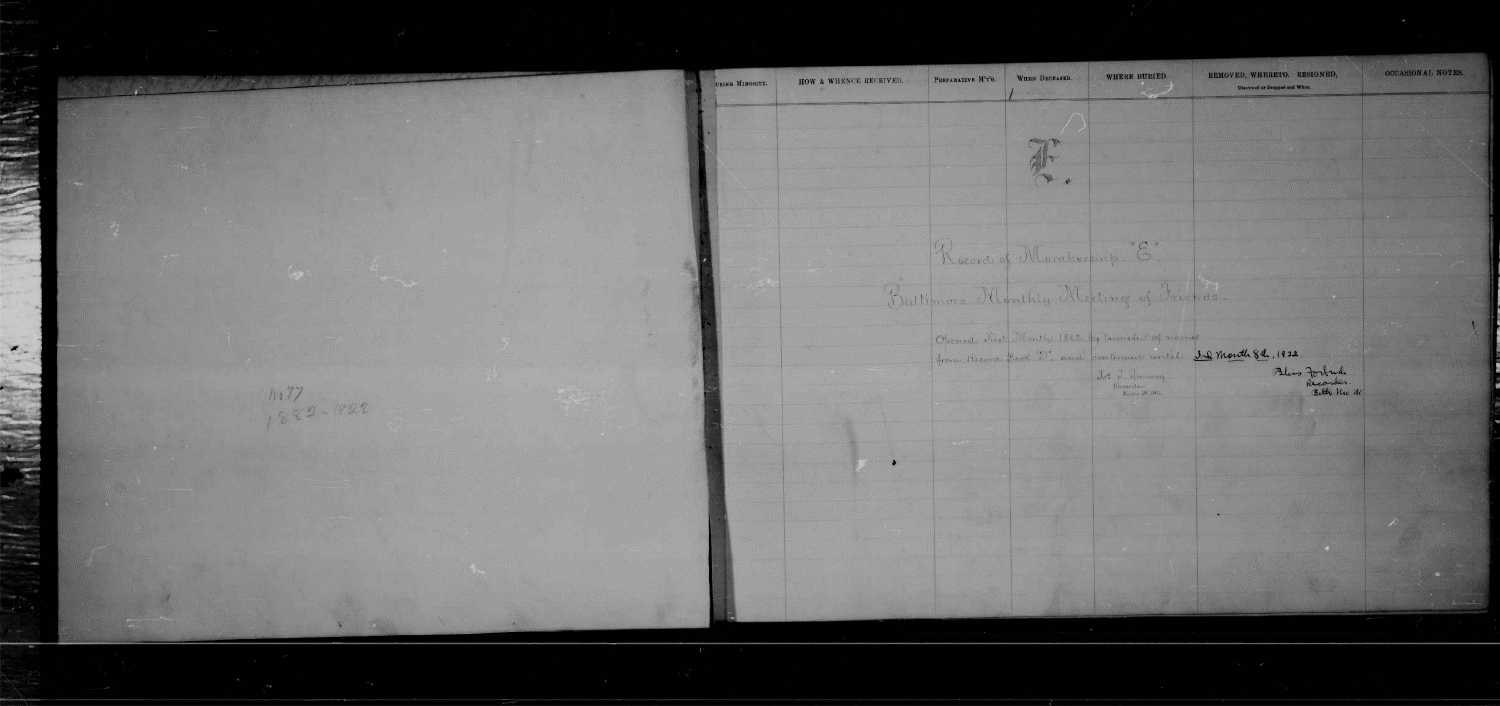 M77
1882-1922
URING MINORITY.
HOW & WHENCE RECEIVED.
PREPARATIVE M'T'G.
WHEN DECEASED.
WHERE BURIED.
REMOVED, WHERETO. RESIGNED,
Disowned or Dropped and When.
OCCASIONAL NOTES.
E.
Record of Membership "E".
Baltimore Monthly Meeting of Friends.
Opened First Month 1882 by transfer of names
from Record Book "D" and continued until 3rd Month 8th, 1922
Jos. J.
Recorder
Bliss Forbush
Recorder
Balto